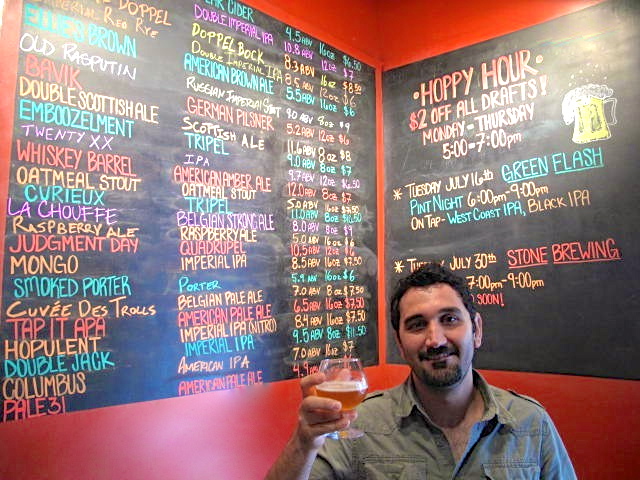 DOPPEL
IMPERIAL RED RYE
ELLIE'S BROWN
OLD RASPUTIN
BAVIK
DOUBLE SCOTTISH ALE
EMBOOZELMENT
TWENTY XX
WHISKEY BARREL
OATMEAL STOUT
CURIEUX
LA CHOUFFE
RASPBERRY ALE
JUDGMENT DAY
MONGO
SMOKED PORTER
CUVÉE DES TROLLS
TAP IT APA
HOPULENT
DOUBLE JACK
COLUMBUS
PALE 31
CIDER
DOUBLE IMPERIAL IPA
DOPPEL BOCK
DOUBLE IMPERIAL IPA
AMERICAN BROWN ALE
RUSSIAN IMPERIAL STOUT
GERMAN PILSNER
SCOTTISH ALE
TRIPEL
IPA
AMERICAN AMBER ALE
OATMEAL STOUT
TRIPEL
BELGIAN STRONG ALE
RASPBERRY ALE
QUADRUPEL
IMPERIAL IPA
PORTER
BELGIAN PALE ALE
AMERICAN PALE ALE
IMPERIAL IPA (NITRO)
IMPERIAL IPA
AMERICAN IPA
AMERICAN PALE ALE
4.5 ABV 16oz $6.50
10.8 ABV 12oz $7
8.3 ABV 16oz $8.50
8.5 ABV 12oz $6
5.5 ABV 16oz $6
9.0 ABV 8oz $9
5.2 ABV 12oz $6
11.6 ABV 8oz $8
9.0 ABV 8oz $7
9.7 ABV 12oz $6.50
12.0 ABV 8oz $7
5.0 ABV 16oz
11.0 ABV 8oz $10.50
8.0 ABV 8oz $9
5.0 ABV 16oz $6
10.5 ABV 12oz $6
8.5 ABV 16oz $7.50
5.9 ABV 16oz $6
7.0 ABV 8oz $7.50
6.5 ABV 16oz $7.50
8.9 ABV 16oz $7.50
9.5 ABV 8oz $11.50
7.0 ABV 16oz $7
4.9 ABV
• HOPPY HOUR •
$2 OFF ALL DRAFTS!
MONDAY - THURSDAY
5:00-7:00pm
* TUESDAY JULY 16th GREEN FLASH
PINT NIGHT 6:00pm-9:00pm
ON TAP - WEST COAST IPA, BLACK IPA
* JULY 30th STONE BREWING
7:00pm-9:00pm
SOON!